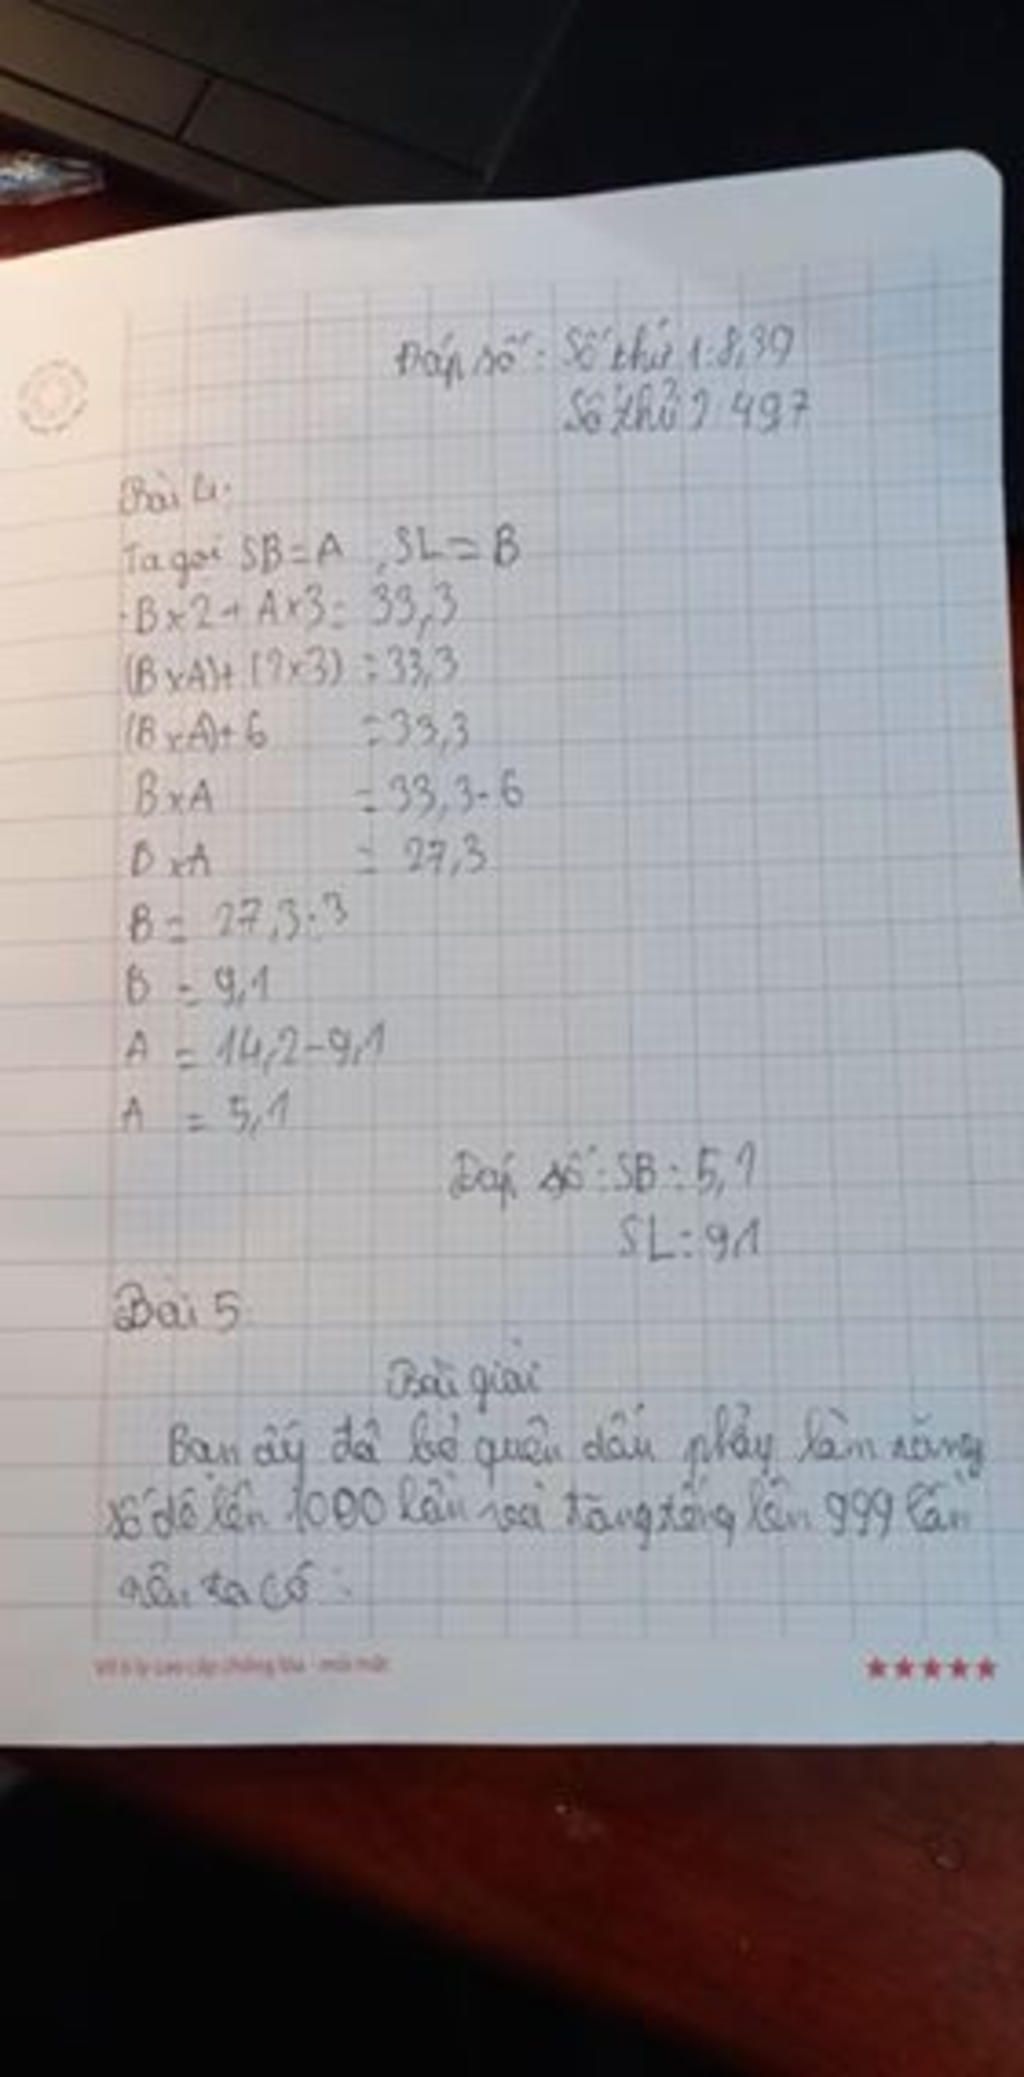 Đáp số: Số thứ 1: 8,39
Số thứ 2: 497
Bài 4:
Ta gọi SB = A , SL = B
B x 2 + A x 3 = 33,3
(B x A) + (2 x 3) = 33,3
(B x A) + 6 = 33,3
B x A = 33,3 - 6
B x A = 27,3
B = 27,3 : 3
B = 9,1
A = 14,2 - 9,1
A = 5,1
Đáp số: SB: 5,1
SL: 9,1
Bài 5
Bài giải
Bạn ấy đã bỏ quên dấu phẩy làm
số đó lên 1000 lần và tăng lên 999 lần
nên ta có:
Vở ô ly cao cấp chống lóa - mỏi mắt